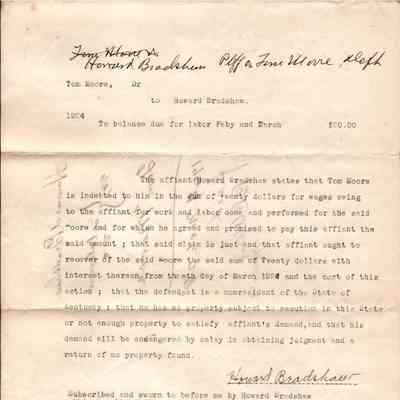 Tom Moore vs
Howard Bradshaw Plff vs Tom Moore, Deft
Tom Moore, Dr
to Howard Bradshaw.
1904
To balance due for labor Feby and March $20.00
The affiant Howard Bradshaw states that Tom Moore
is indebted to him in the sum of twenty dollars for wages owing
to the affiant for work and labor done and performed for the said
Moore and for which he agreed and promised to pay this affiant the
said amount ; that said claim is just and that affiant ought to
recover of the said Moore the said sum of Twenty dollars with
interest thereon from the th day of March 1904 and the cost of this
action ; that the defendant is a nonresident of the State of
Kentucky ; that he has no property subject to execution in this State
or not enough property to satisfy affiant's demand, and that his
demand will be endangered by delay in obtaining judgment and a
return of no property found.
Howard Bradshaw
Subscribed and sworn to before me by Howard Bradshaw